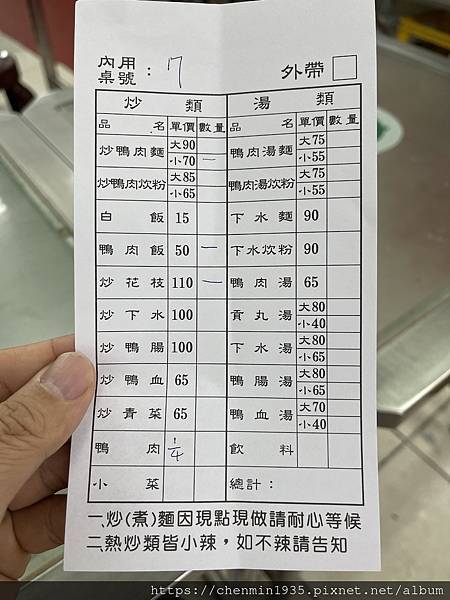 內用桌號：7 外帶
炒類 湯類
品名 單價 數量 品名 單價 數量
炒鴨肉麵 大90 小70 一 鴨肉湯麵 大75 小55
炒鴨肉炊粉 大85 小65 鴨肉湯炊粉 大75 小55
白飯 15 下水麵 90
鴨肉飯 50 一 下水炊粉 90
炒花枝 110 一 鴨肉湯 65
炒下水 100 貢丸湯 大80 小40
炒鴨腸 100 下水湯 大80 小65
炒鴨血 65 鴨腸湯 大80 小65
炒青菜 65 鴨血湯 大70 小40
鴨肉 1/4 飲料
小菜 總計：
一、炒(煮)麵因現點現做請耐心等候
二、熱炒類皆小辣，如不辣請告知
https://chenmin1935.pixnet.net/album